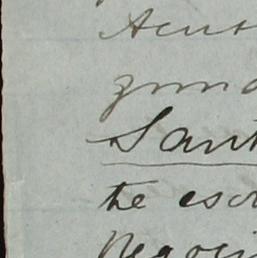 Acus
gund
Sant
te esc
Negoci